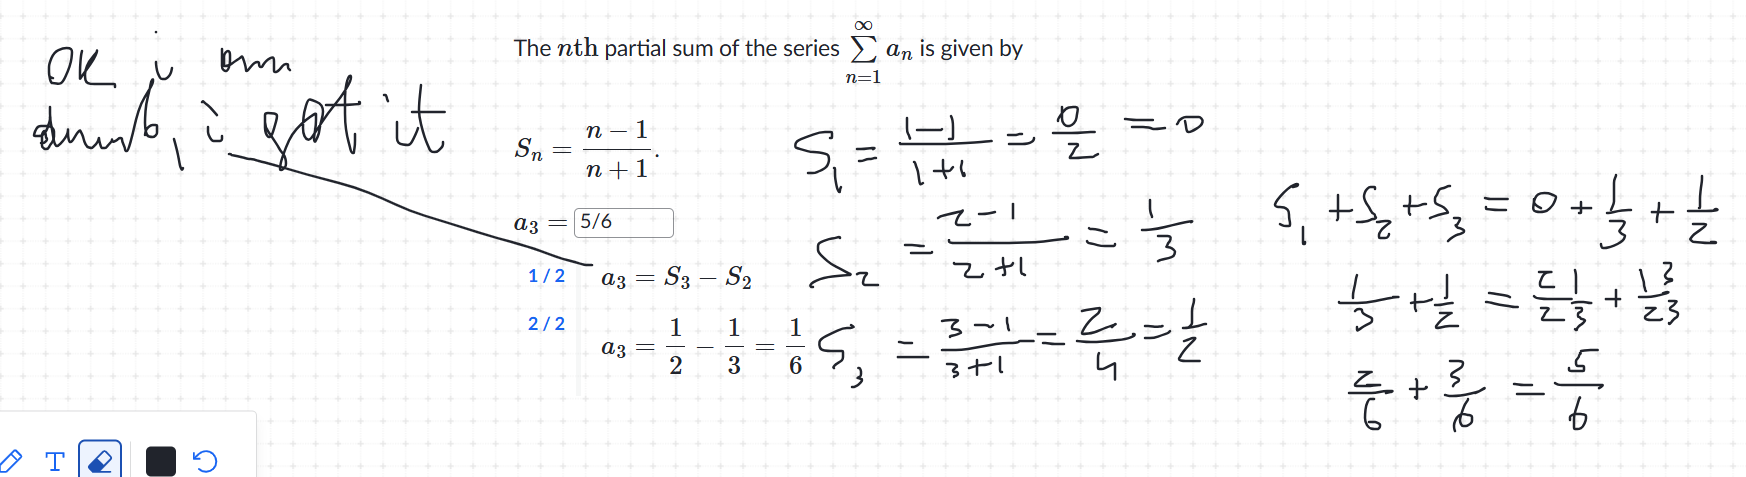 OK i am
dumb, i got it
The nth partial sum of the series ∑_{n=1}^{∞} a_n is given by
S_n = (n − 1)/(n + 1).
a_3 = 5/6
1 / 2 a_3 = S_3 − S_2
2 / 2 a_3 = 1/2 − 1/3 = 1/6
S_1 = (1-1)/(1+1) = 0/2 = 0
S_2 = (2-1)/(2+1) = 1/3
S_3 = (3-1)/(3+1) = 2/4 = 1/2
S_1 + S_2 + S_3 = 0 + 1/3 + 1/2
1/3 + 1/2 = (2 1)/(2 3) + (1 3)/(2 3)
2/6 + 3/6 = 5/6
T